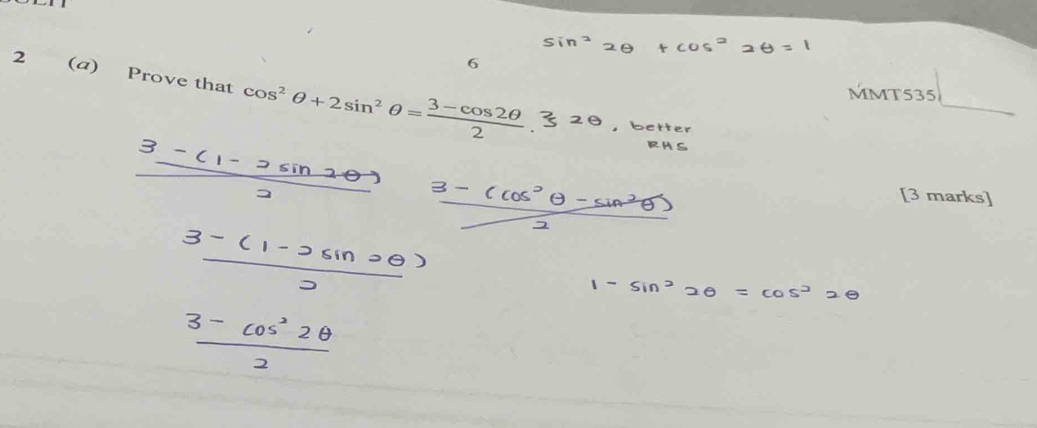 sin² 2θ + cos² 2θ = 1
6
MMT535
2 (a) Prove that cos² θ + 2 sin² θ = (3 − cos 2θ)/2 . 2θ, better
RHS
[3 marks]
3 − (1 − 2 sin 2θ)
2
3 − (cos² θ − sin² θ)
2
3 − (1 − 2 sin 2θ)
2
1 − sin² 2θ = cos² 2θ
3 − cos² 2θ
2